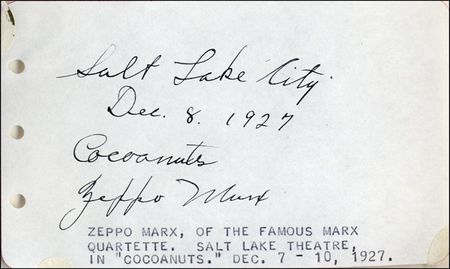 Salt Lake City
Dec. 8. 1927
Cocoanuts
Zeppo Marx
ZEPPO MARX, OF THE FAMOUS MARX
QUARTETTE. SALT LAKE THEATRE,
IN "COCOANUTS." DEC. 7 - 10, 1927.